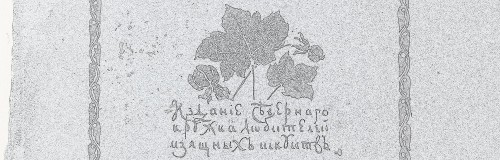 Изданіе Сѣвернаго
крꙋжка любителей
изящныхъ искꙋствъ